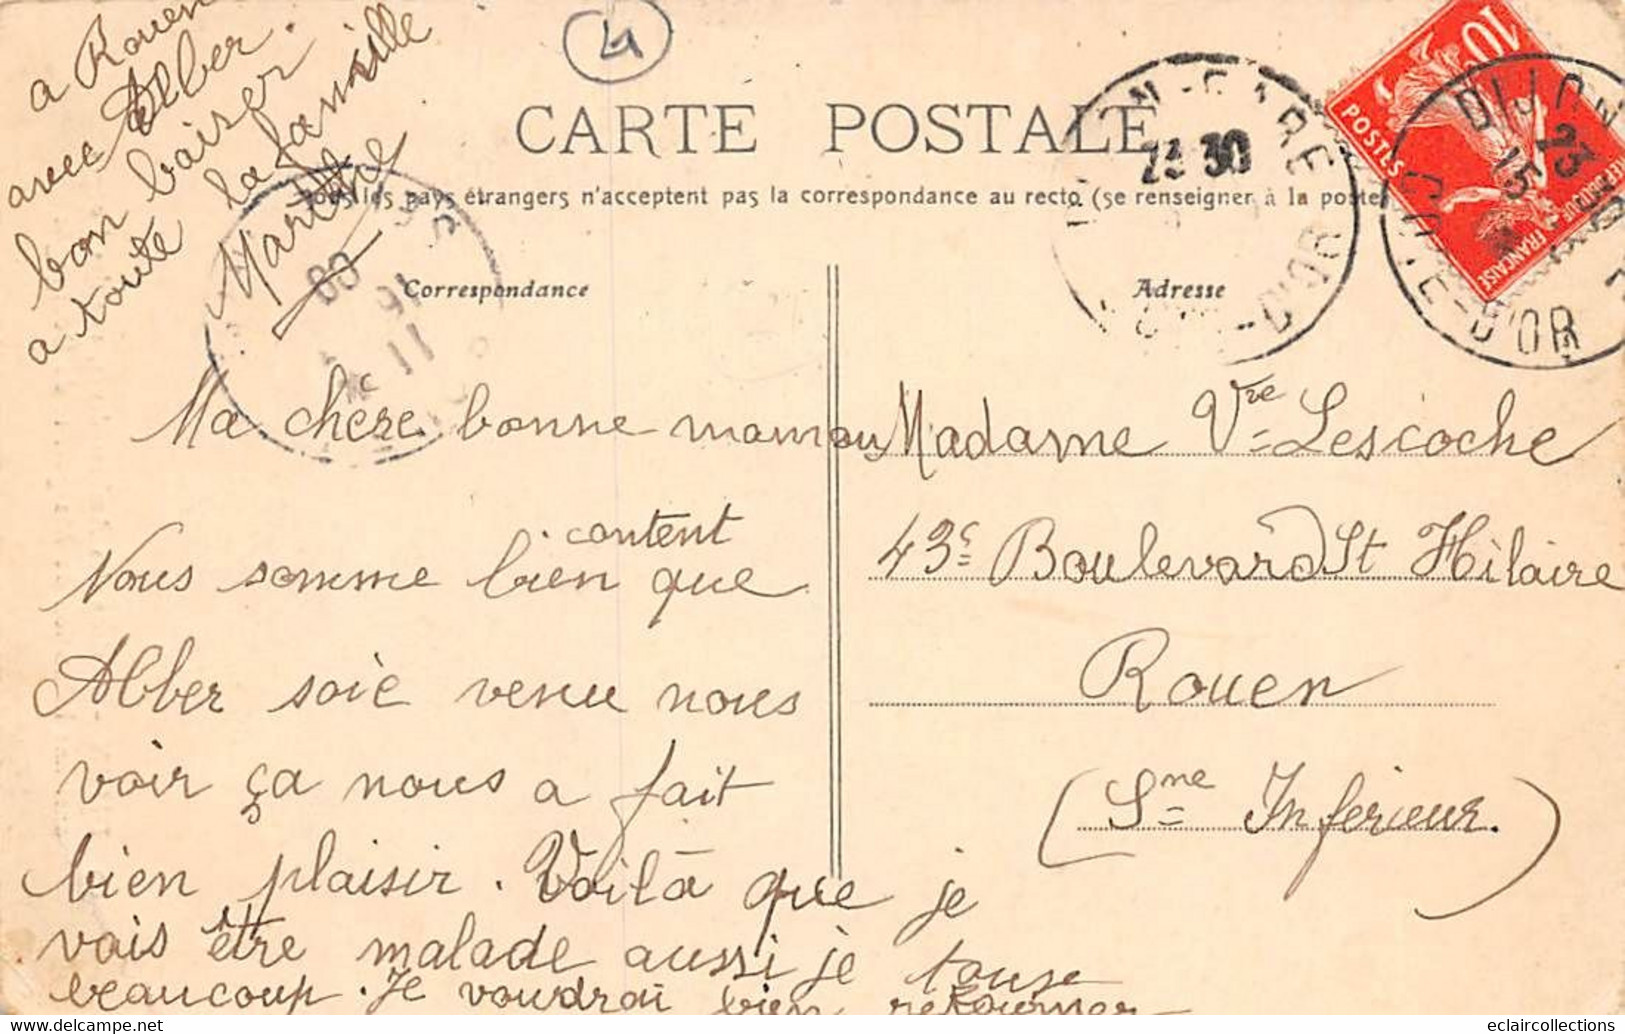 4
CARTE POSTALE
Tous les pays étrangers n'acceptent pas la correspondance au recto (se renseigner à la poste)
Correspondance
Adresse
GARE
23 30
D'OR
10
POSTES
REPUBLIQUE FRANÇAISE
DIJON
COTE-D'OR
Ma chere bonne maman
Nous somme bien content que
Abber soie venu nous
voir ça nous a fait
bien plaisir. Voilà que je
vais être malade aussi je touse
beaucoup. Je voudrai bien retourner
a Rouen
avec Abber.
bon baiser
a toute la famille
Marthe
Madame Vve Lescoche
43c Boulevard St Hilaire
Rouen
(Sne Inferieur.)
eclaircollections